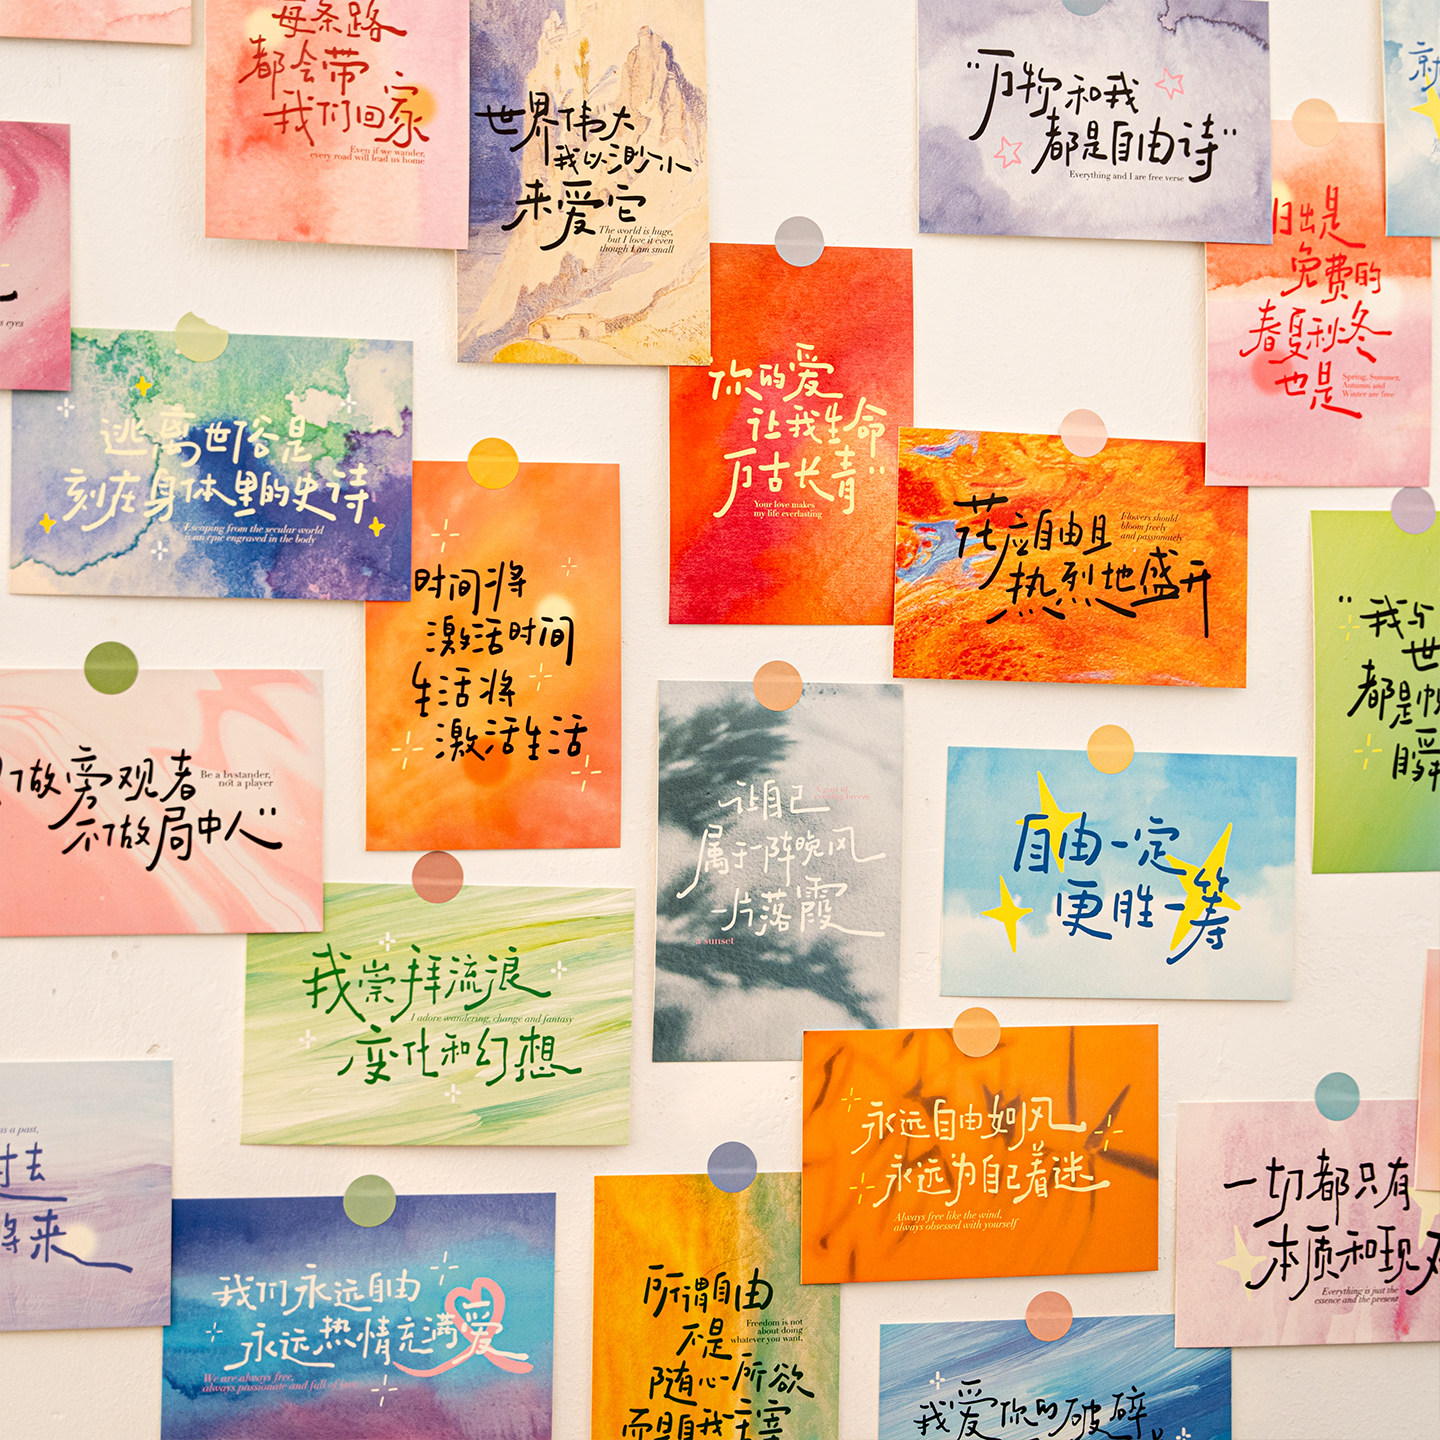 每条路
都会带
我们回家
Even if we wander,
every road will lead us home
世界伟大
我以渺小
来爱它
The world is huge,
but I love it even
though I am small
"万物和我
都是自由诗"
Everything and I are free verse
就
日出是
免费的
春夏秋冬
也是
Spring, Summer,
Autumn and
Winter are free
s eyes
逃离世俗是
刻在身体里的史诗
Escaping from the secular world
is an epic engraved in the body
你的爱
让我生命
万古长青"
Your love makes
my life everlasting
花应自由且
热烈地盛开
Flowers should
bloom freely
and passionately
时间将
激活时间
生活将
激活生活
"我与
世
都是
瞬
做旁观者
不做局中人"
Be a bystander,
not a player
让自己
属于一阵晚风
一片落霞
a sunset
自由一定
更胜一筹
我崇拜流浪
I adore wandering, change and fantasy
变化和幻想
永远自由如风
永远为自己着迷
Always free like the wind,
always obsessed with yourself
as a past,
过去
将来
一切都只有
本质和现
Everything is just the
essence and the present
我们永远自由
永远热情充满爱
We are always free,
always passionate and full of
所谓自由
不是
Freedom is not
about doing
whatever you want,
随心所欲
而是自我主宰
我爱你的破碎